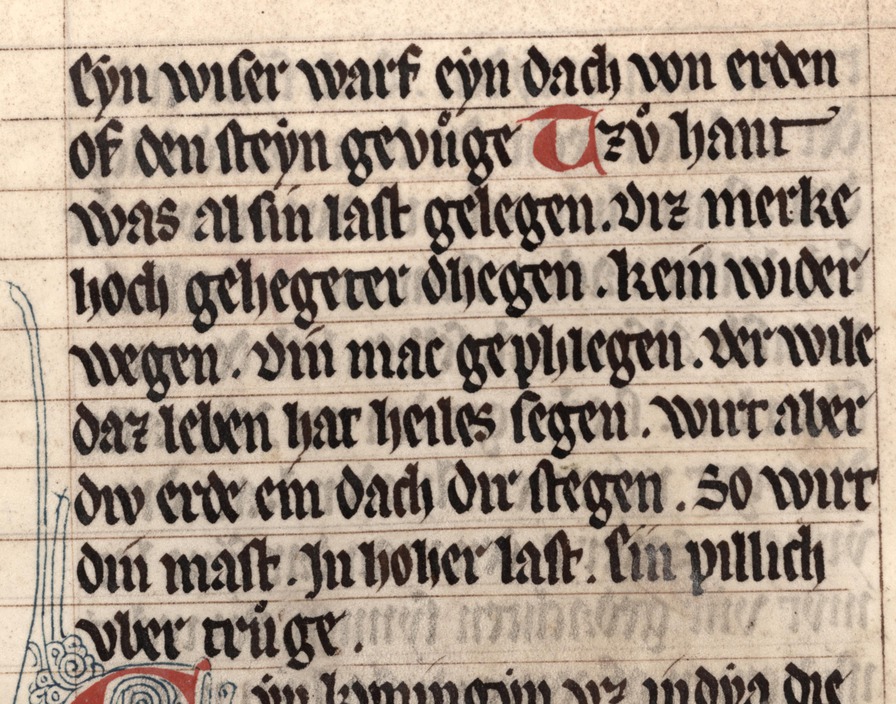 Eyn wiser warf eyn dach von erden
of den steyn gevůge Tzů hant
was al sin last gelegen. Diz merke
hoch gehegeter dhegen. kein wider
wegen. Din mac gephlegen. Der wile
daz leben hat heiles segen. wirt aber
div erde ein dach dir stegen. So wirt
din mast. In hoher last. sin pillich
vber trůge.
Eyn kvningin vz indya die